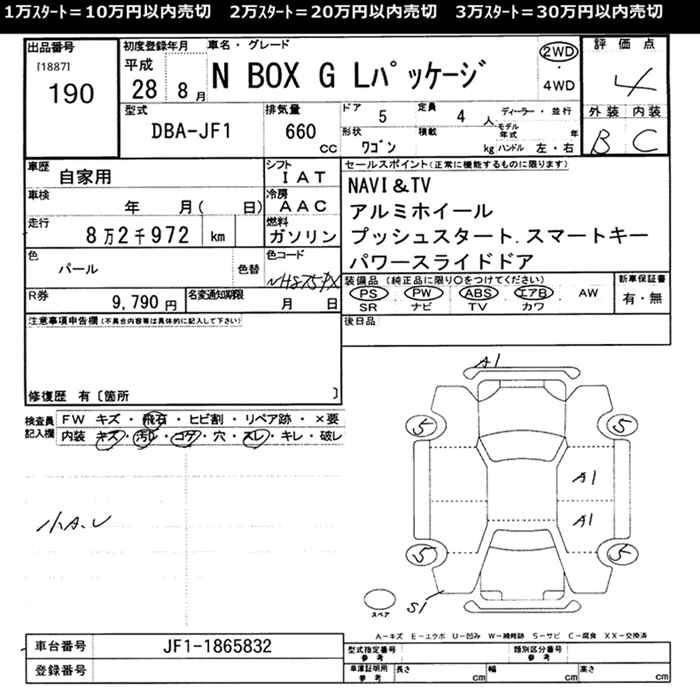 1万スタート=10万円以内売切　2万スタート=20万円以内売切　3万スタート=30万円以内売切
出品番号
[1887]
190
初度登録年月
平成
28 8月
車名・グレード
N BOX G Lパッケージ
2WD
・
4WD
評価点
4
外装 内装
B C
型式
DBA-JF1
排気量
660
cc
ドア
5
定員
4
人
ディーラー・並行
形状
ワゴン
積載
kg
モデル年式
年
ハンドル 左・右
車歴
自家用
シフト
IAT
車検
年 月( 日)
冷房
AAC
走行
8万2千972 km
燃料
ガソリン
色
パール
色替
色コード
NH875PX
R券
9,790円
名変通知期限
月 日
セールスポイント(正常に機能するものに限ります)
NAVI&TV
アルミホイール
プッシュスタート.スマートキー
パワースライドドア
装備品(純正品に限り○をつけてください)
PS・PW・ABS・エアB・AW
SR ナビ TV カワ
新車保証書
有・無
後日品
注意事項申告欄(不具合内容等は具体的に記入して下さい)
修復歴 有〔箇所 〕
検査員
記入欄
FW キズ・飛石・ヒビ割・リペア跡・×要
内装 キズ・汚レ・コゲ・穴・スレ・キレ・破レ
小A.U
A1
5
5
A1
A1
5
5
S1
スペア
A−キズ E−エクボ U−凹み W−補修跡 S−サビ C−腐食 XX−交換済
車台番号
JF1-1865832
登録番号
型式指定番号
参考
類別区分番号
参考
車庫証明用
参考
長さ cm
幅 cm
高さ cm